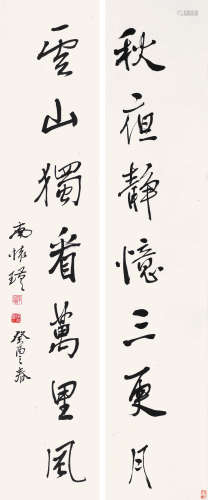 秋夜静憶三更月
雲山獨看萬里風
南懷瑾
癸酉春